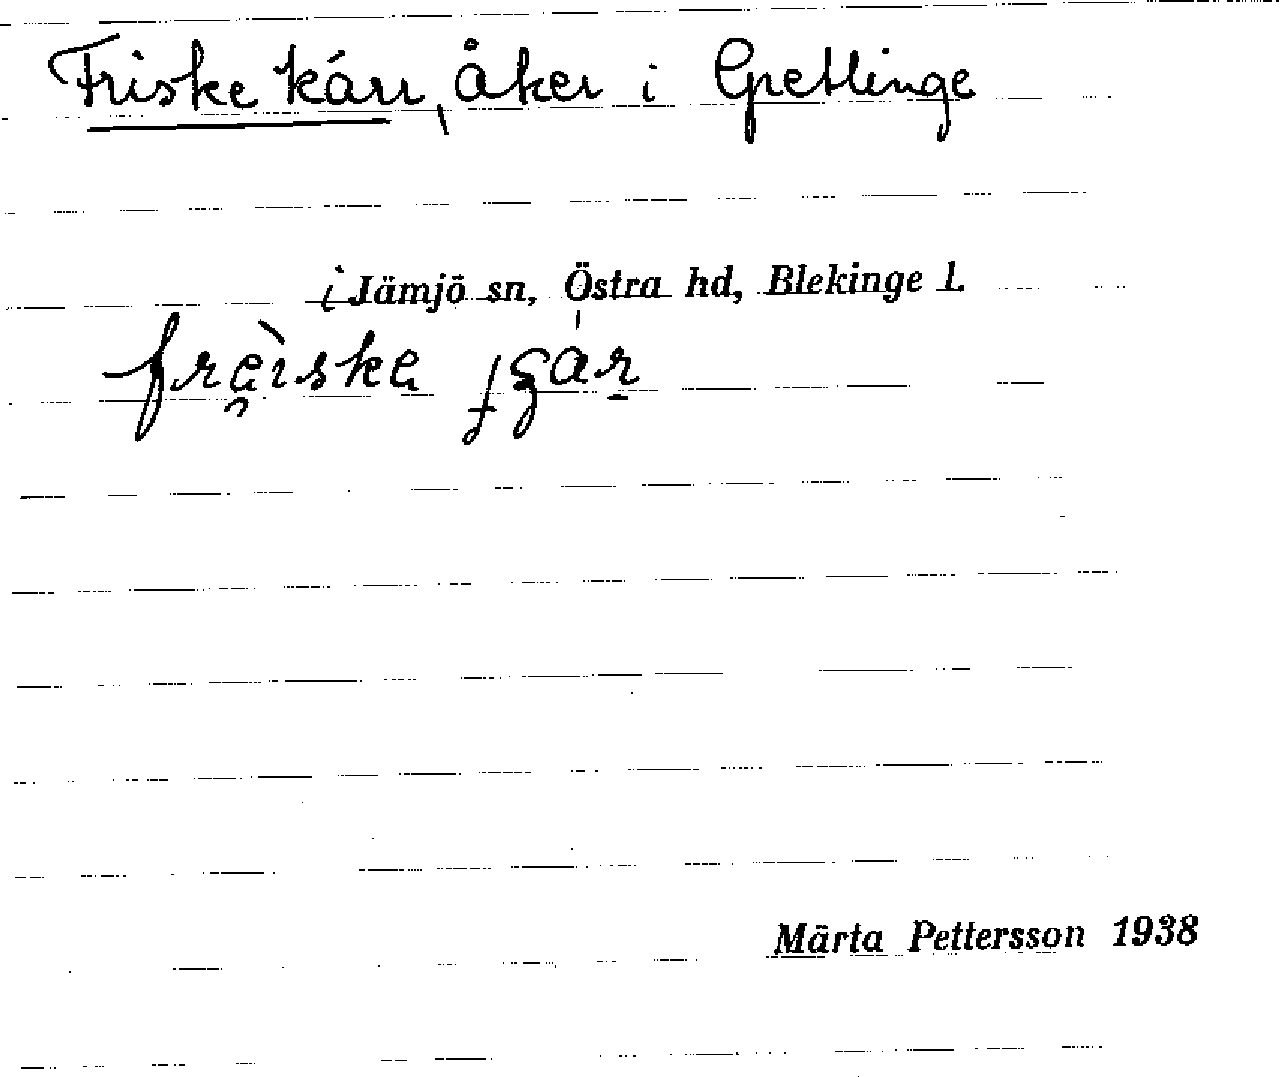 Friske kárr, åker i Gretlinge
i Jämjö sn, Östra hd, Blekinge l.
Märta Pettersson 1938